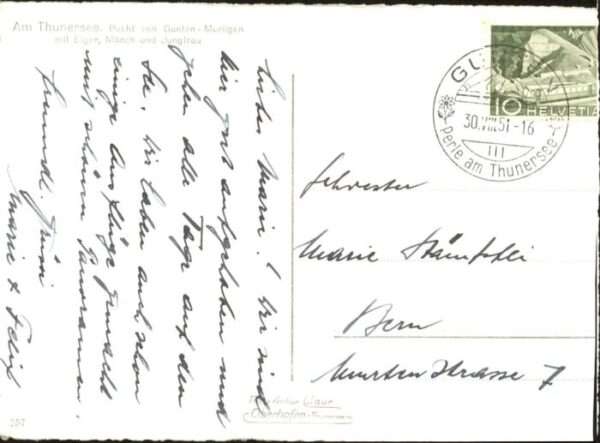 Am Thunersee. Bucht von Gunten-Merligen
mit Eiger, Mönch und Jungfrau
Liebe Marie! Wir sind
hier gut aufgehoben und
gehen alle Tage auf den
See, wir haben auch schon
einige Ausflüge gemacht
mit schönen Panoramen.
freundl. Grüsse
Marie & Felix
10 HELVETIA
30.VIII.51-16
III
Perle am Thunersee
Schwester
Marie Stämpfli
Bern
Murtenstrasse 7
Oberhofen